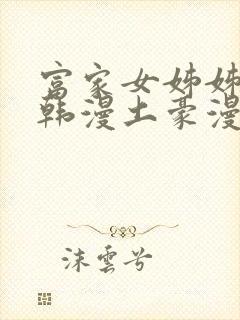 富家女姊姊
韩漫土豪漫
沫雲兮